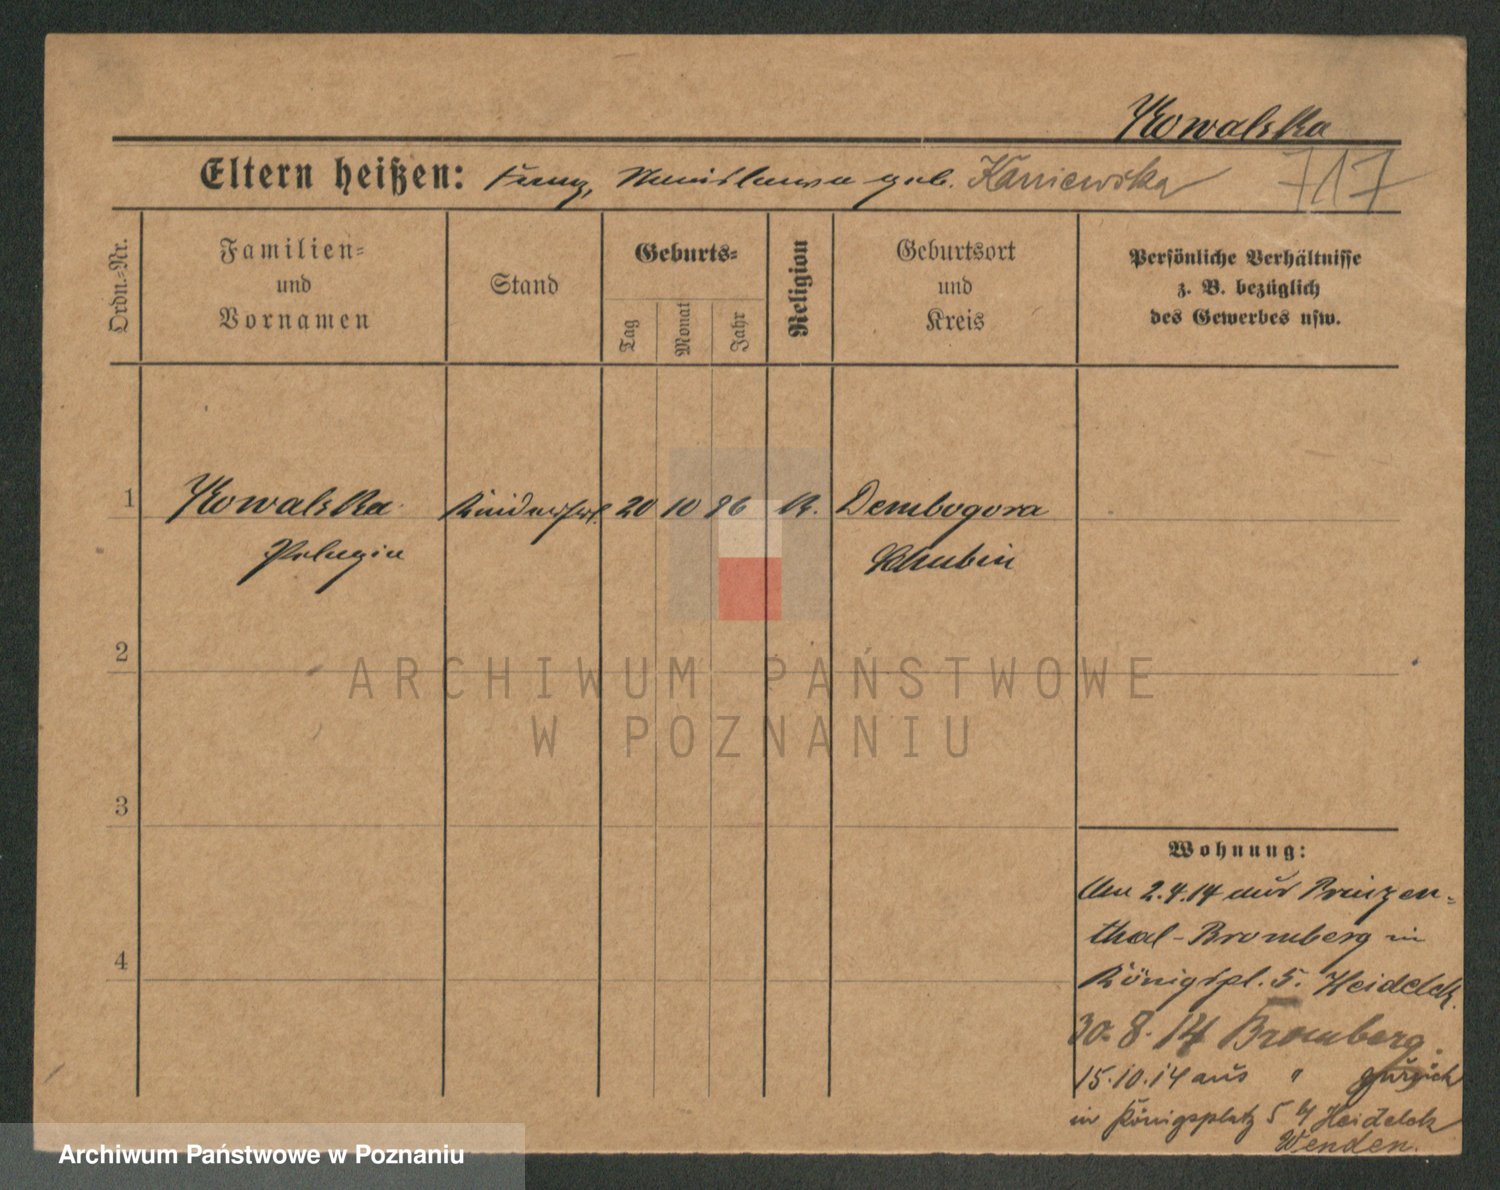 Kowalska
Eltern heißen: Franz, Stanislawa geb. Kaniewska 717
Ordn.-Nr.
Familien=
und
Vornamen
Stand
Geburts=
Tag
Monat
Jahr
Religion
Geburtsort
und
Kreis
Persönliche Verhältnisse
z. B. bezüglich
des Gewerbes usw.
1 Kowalska Kinderfrl. 20 10 96 K. Dembogora
Pelagia Schubin
2
3
4
Wohnung:
Am 2.4.14 aus Prinzen-
thal-Bromberg in
Königspl. 5. Heidelck.
30.8.14 Bromberg.
15.10.14 aus " zurück
in Königsplatz 5 b/ Heidelck
Wenden.
ARCHIWUM PAŃSTWOWE
W POZNANIU
Archiwum Państwowe w Poznaniu